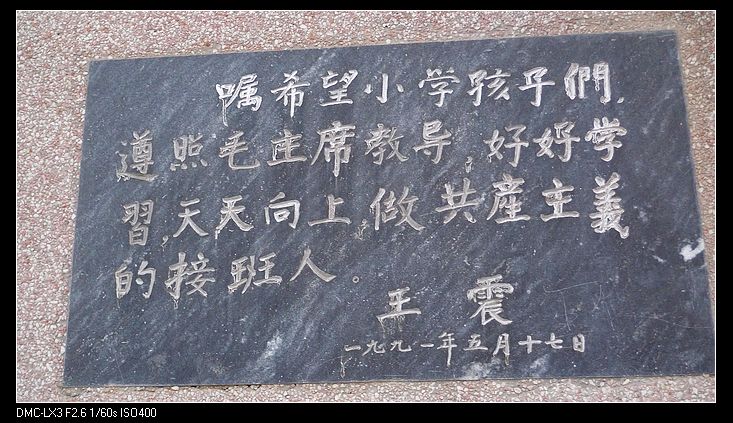 嘱希望小学孩子們,
遵照毛主席教导,好好学
習,天天向上,做共產主義
的接班人。
王震
一九九一年五月十七日
DMC-LX3 F2.6 1/60s ISO400